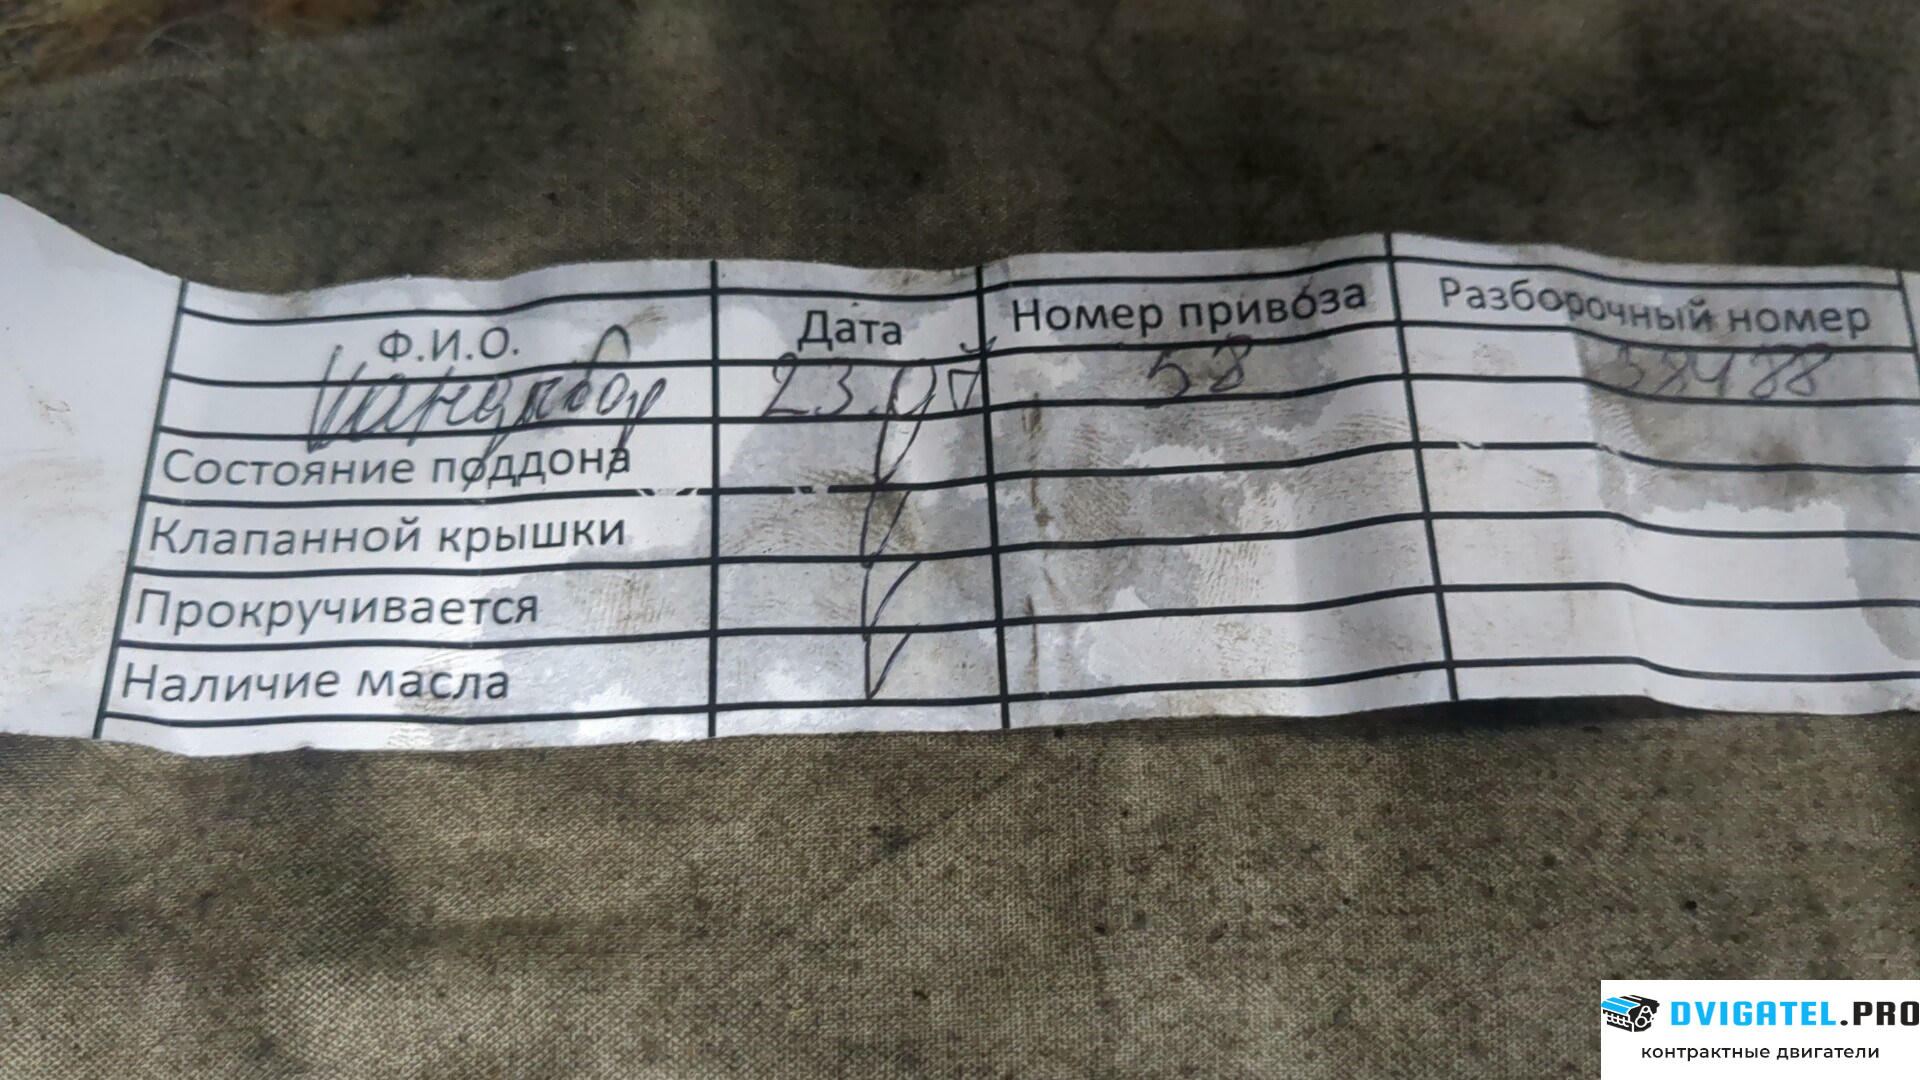 Ф.И.О. Дата Номер привоза Разборочный номер
23.07 58 38488
Состояние поддона
Клапанной крышки
Прокручивается
Наличие масла
DVIGATEL.PRO
контрактные двигатели